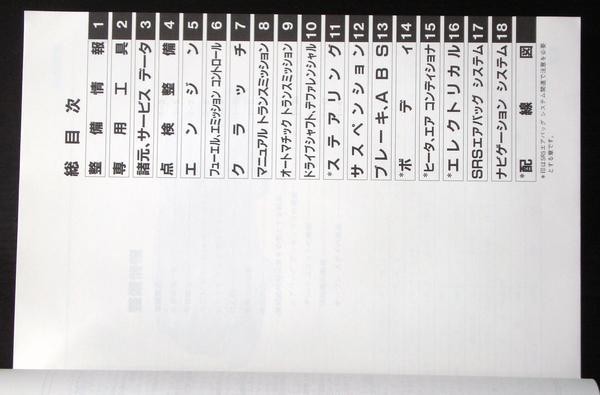 総目次
整備情報 1
専用工具 2
諸元、サービス データ 3
点検整備 4
エンジン 5
フューエル、エミッション コントロール 6
クラッチ 7
マニュアル トランスミッション 8
オートマチック トランスミッション 9
ドライブシャフト、デファレンシャル 10
*ステアリング 11
サスペンション 12
ブレーキ、ABS 13
*ボディ 14
*ヒータ、エア コンディショナ 15
*エレクトリカル 16
SRSエアバッグ システム 17
ナビゲーション システム 18
*配線図
*印はSRSエアバッグ システム関連で注意を必要
とする章です。